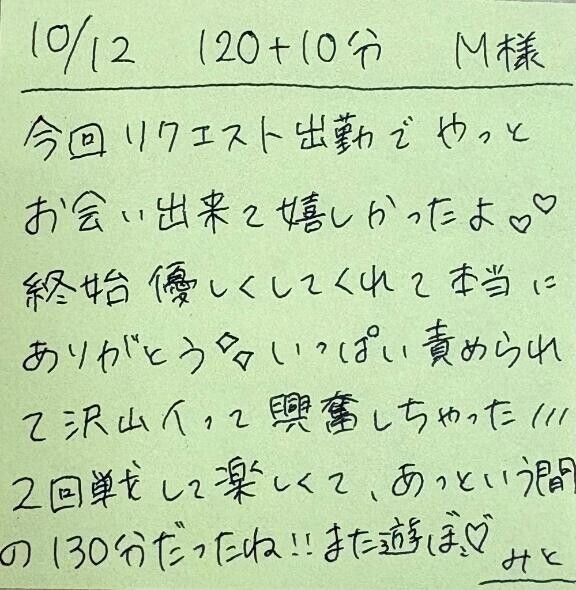 10/12 120+10分 M様
今回リクエスト出勤でやっと
お会い出来て嬉しかったよ♡♡
終始優しくしてくれて本当に
ありがとう◇◇いっぱい責められ
て沢山イって興奮しちゃった///
2回戦して楽しくて、あっという間
の130分だったね!!また遊ぼ♡ みと